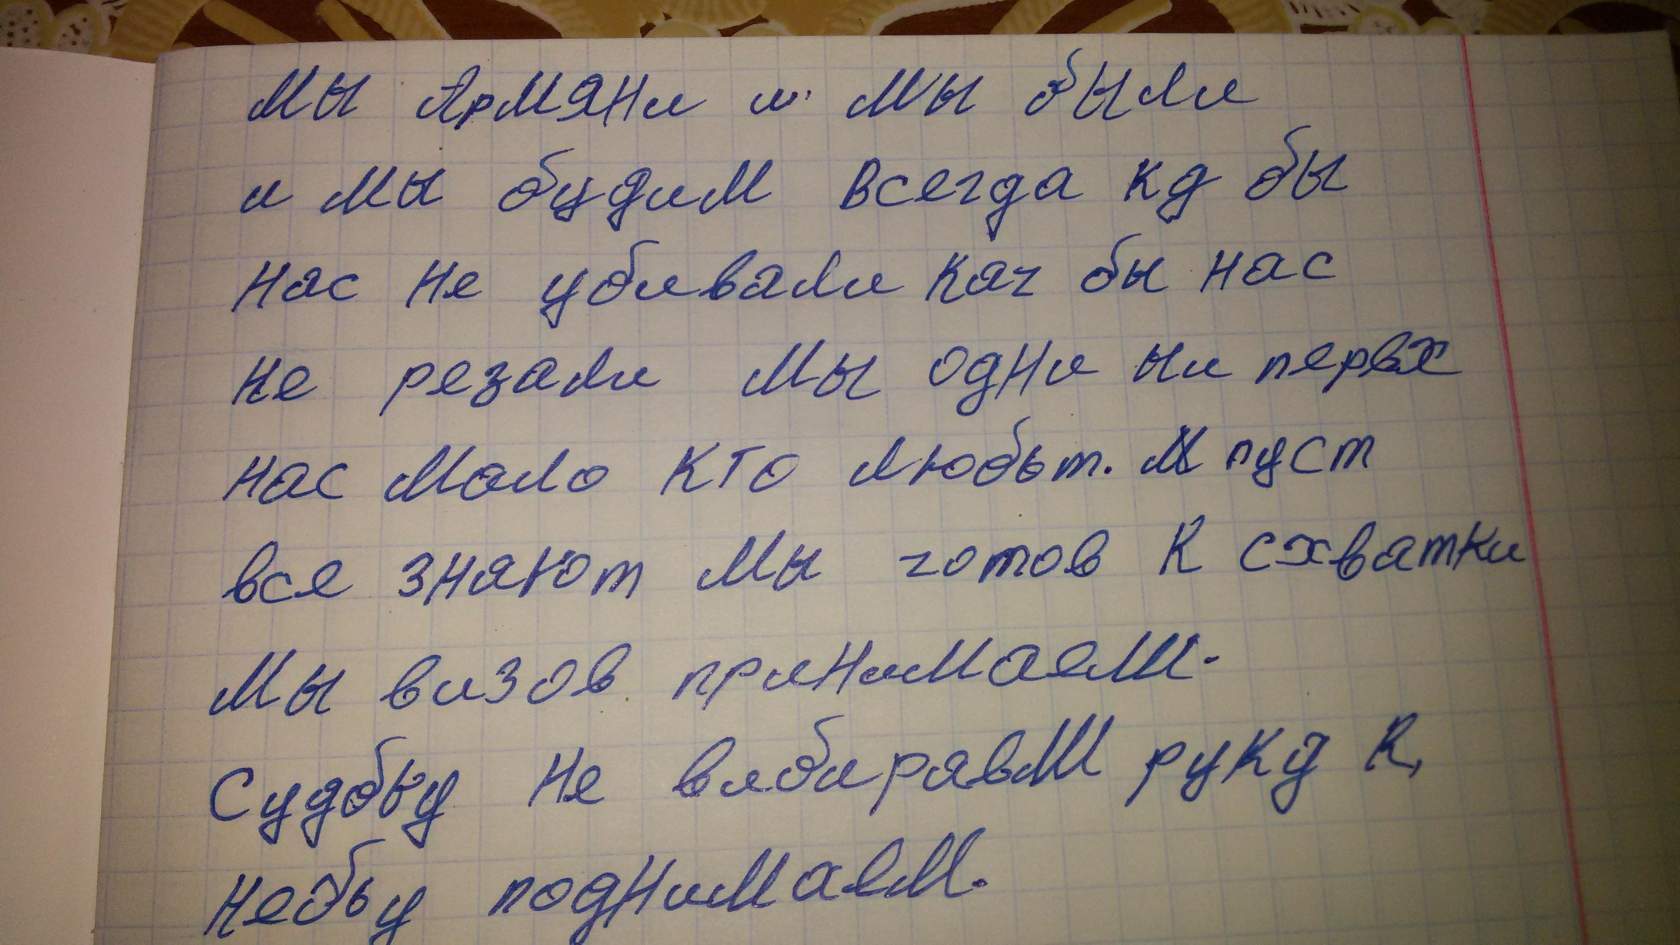 Мы Армяни и мы были
и мы будим всегда кд бы
нас не убивали кач бы нас
не резали мы одни ыи первх
нас мало кто любьт. И пуст
вся знают мы готов к схватки
Мы визов принимаем.
Судбьу не вибираям руку к
небьу поднимаем.